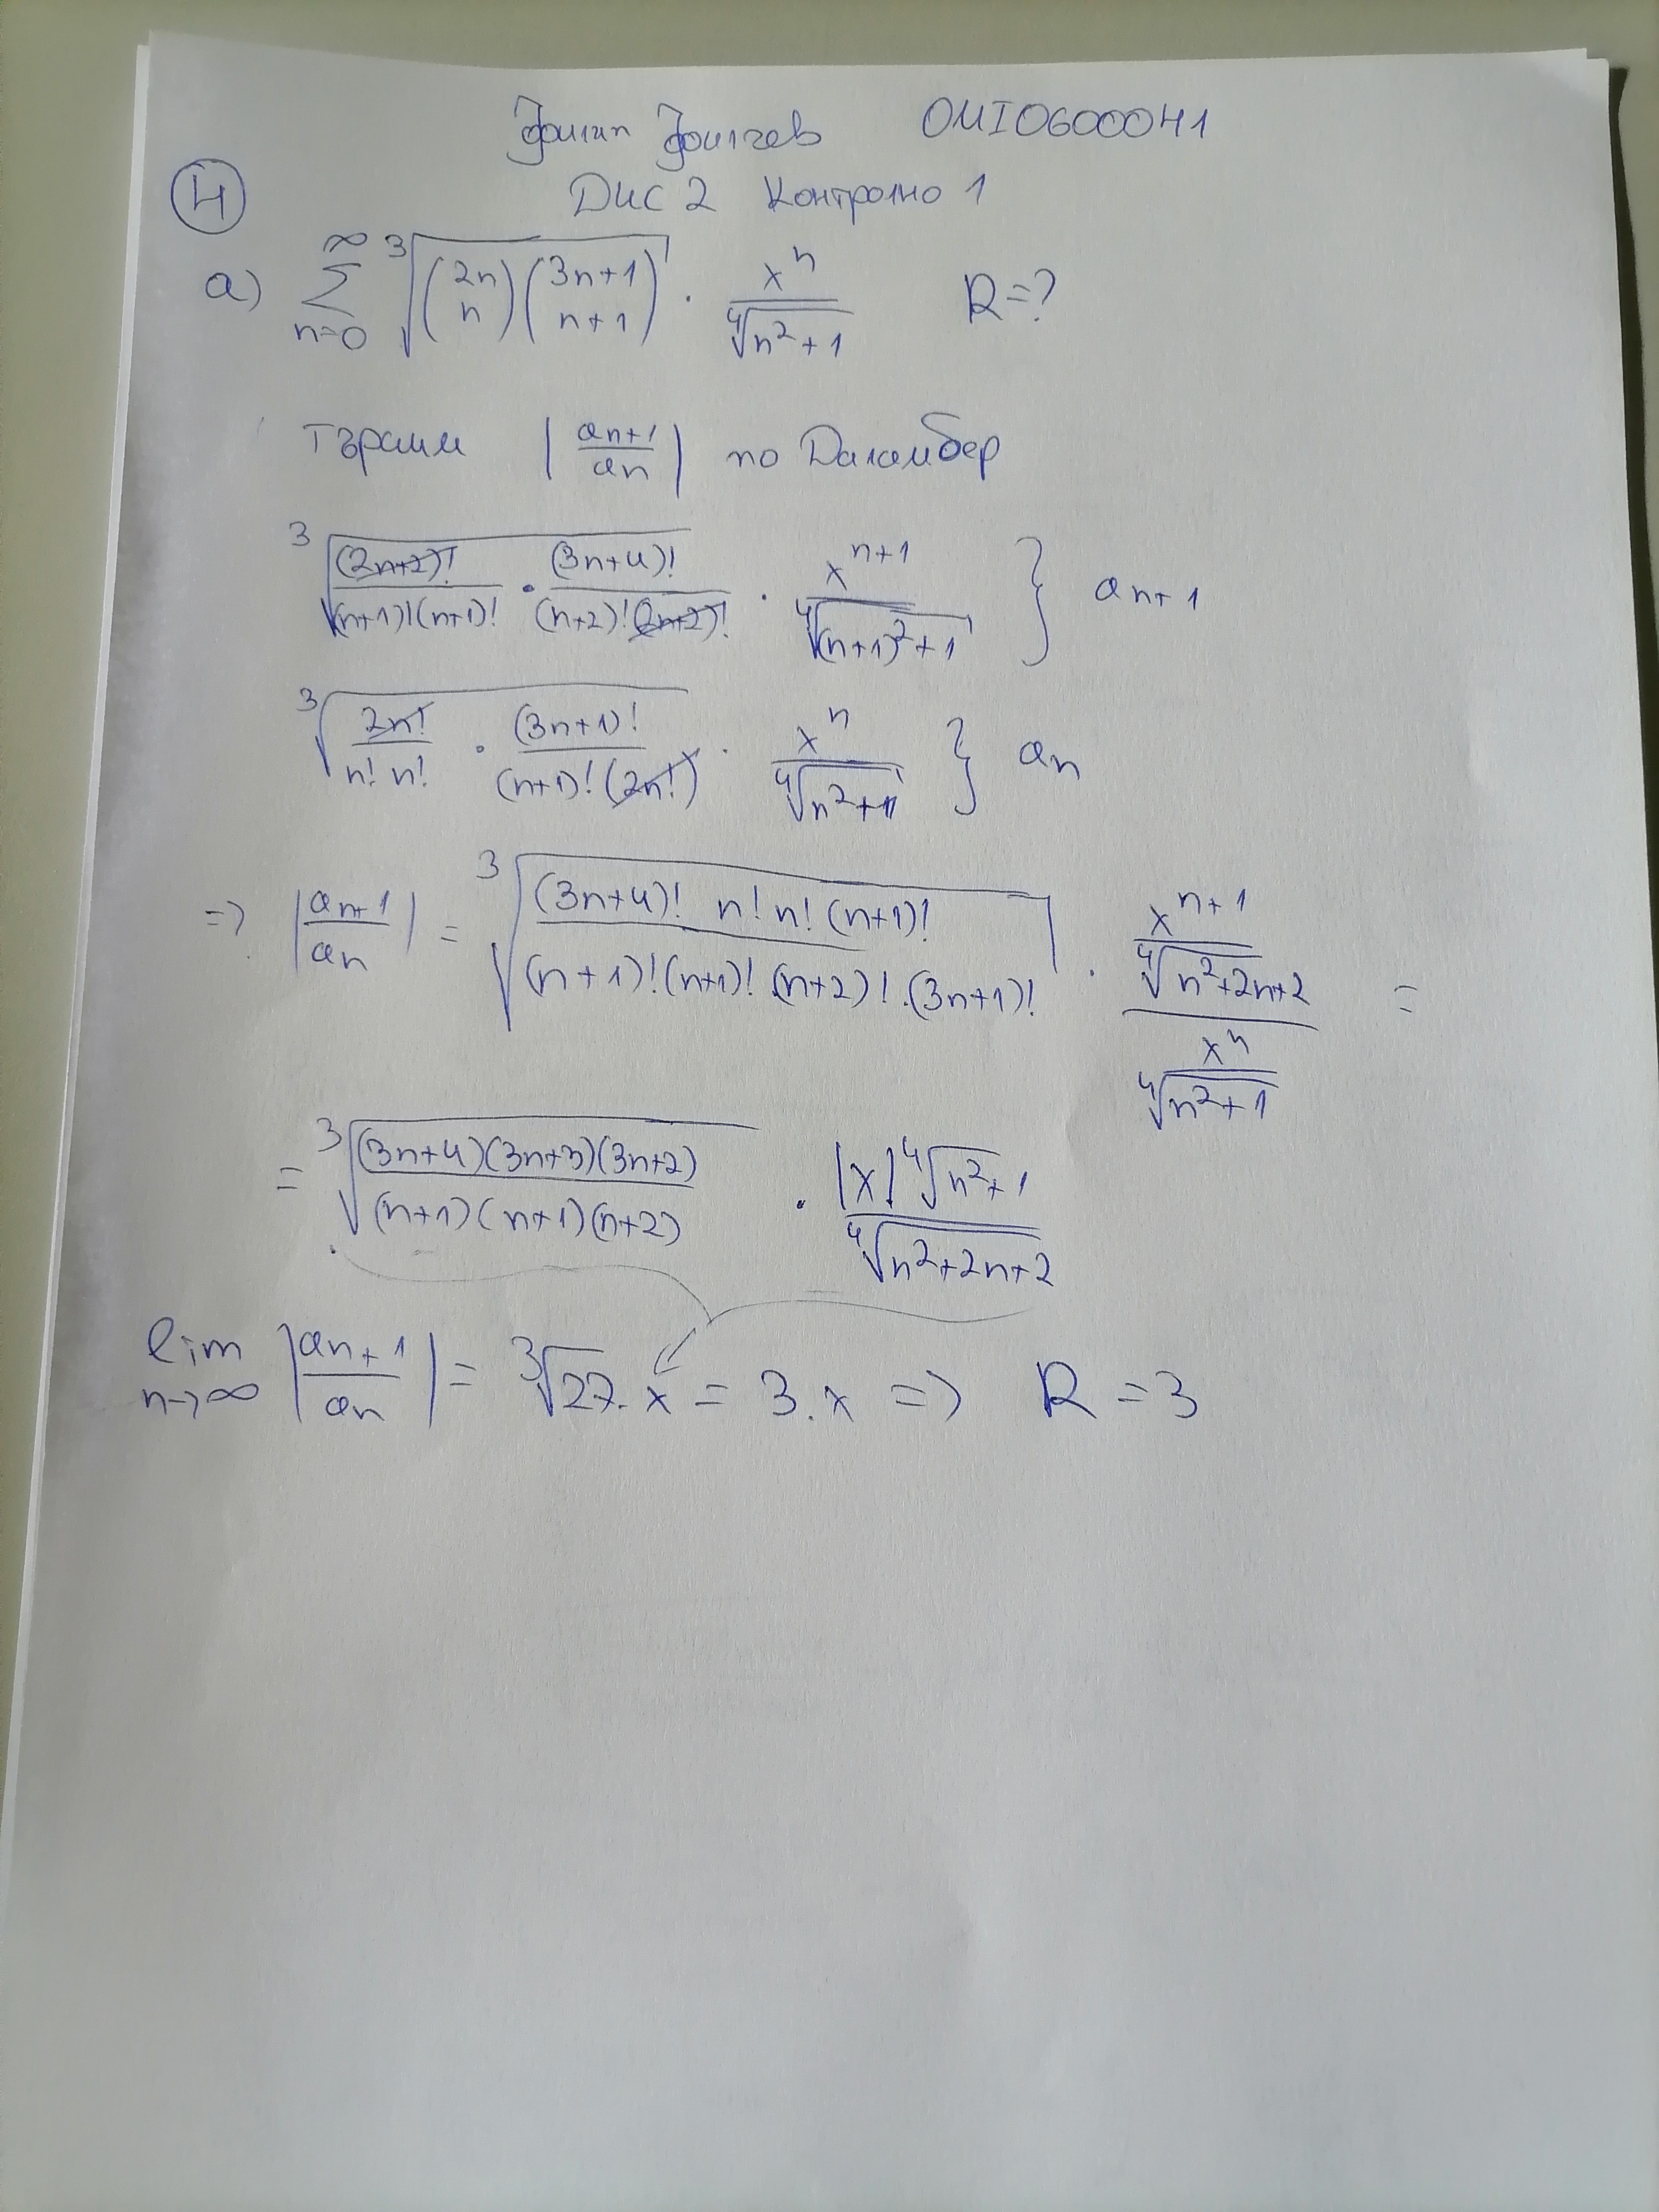 Филип Филчев 0MI0600041
④ ДИС 2 Контролно 1
a) \sum_{n=0}^{\infty} \sqrt[3]{\binom{2n}{n}\binom{3n+1}{n+1}} \cdot \frac{x^n}{\sqrt[4]{n^2+1}} R=?
Търсим \left|\frac{a_{n+1}}{a_n}\right| по Даламбер
\sqrt[3]{\frac{(2n+2)!}{(n+1)!(n+1)!} \cdot \frac{(3n+4)!}{(n+2)!(2n+2)!}} \cdot \frac{x^{n+1}}{\sqrt[4]{(n+1)^2+1}} } a_{n+1}
\sqrt[3]{\frac{2n!}{n! n!} \cdot \frac{(3n+1)!}{(n+1)!(2n!)}} \cdot \frac{x^n}{\sqrt[4]{n^2+1}} } a_n
=> \left|\frac{a_{n+1}}{a_n}\right| = \sqrt[3]{\frac{(3n+4)! n! n! (n+1)!}{(n+1)!(n+1)!.(n+2)!.(3n+1)!}} \cdot \frac{\frac{x^{n+1}}{\sqrt[4]{n^2+2n+2}}}{\frac{x^n}{\sqrt[4]{n^2+1}}} =
= \sqrt[3]{\frac{(3n+4)(3n+3)(3n+2)}{(n+1)(n+1)(n+2)}} \cdot \frac{|x|\sqrt[4]{n^2+1}}{\sqrt[4]{n^2+2n+2}}
\lim_{n\to\infty} \left|\frac{a_{n+1}}{a_n}\right| = \sqrt[3]{27}.x = 3.x => R = 3